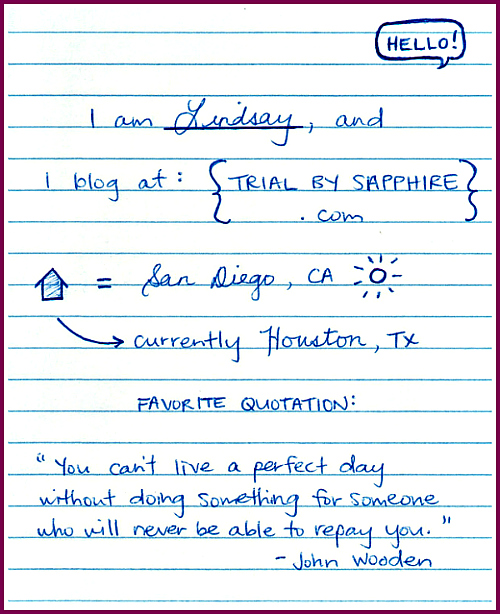 HELLO!
I am Lindsay, and
i blog at: {TRIAL BY SAPPHIRE
.com}
= San Diego, CA
currently Houston, TX
FAVORITE QUOTATION:
"You can't live a perfect day
without doing something for someone
who will never be able to repay you."
- John Wooden